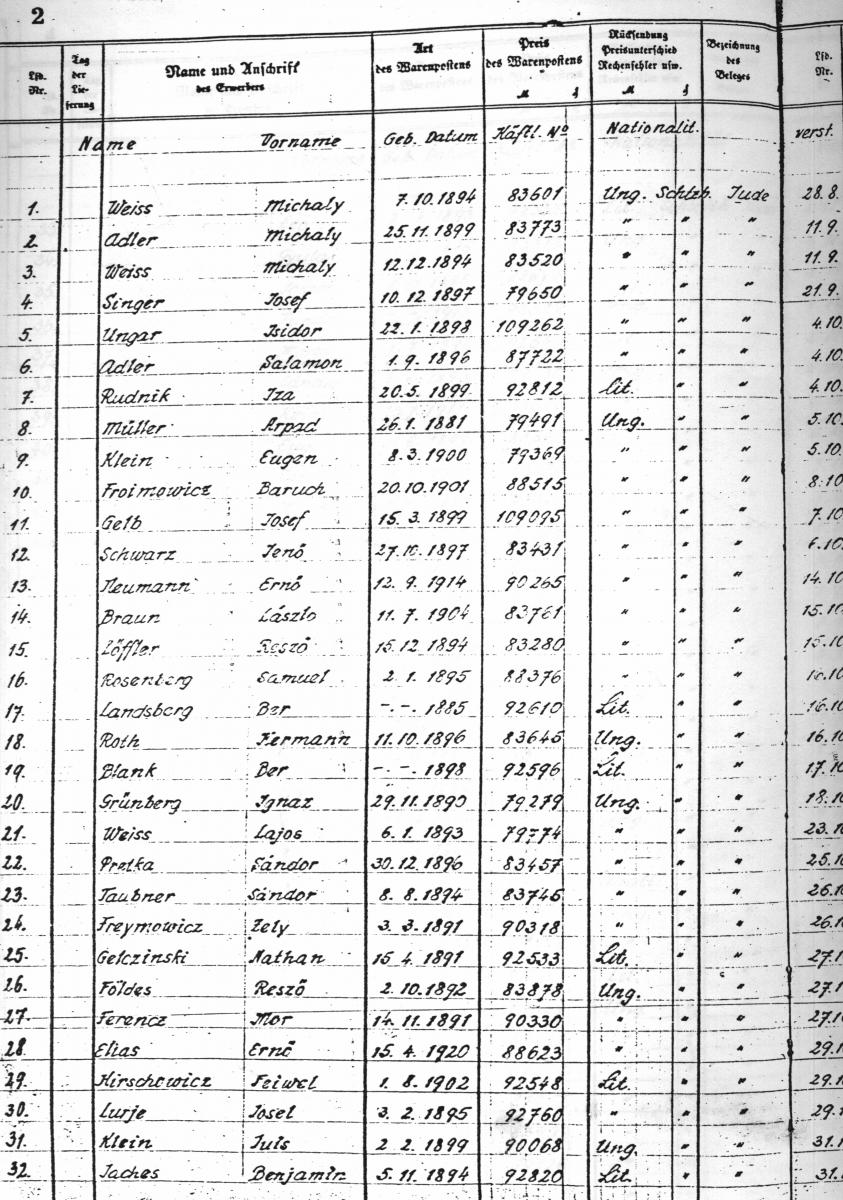 2
Lfd. Nr. Tag der Lieferung Name und Anschrift des Erwerbers Art des Warenpostens Preis des Warenpostens Rücksendung Preisunterschied Rechenfehler usw. Bezeichnung des Beleges Lfd. Nr.
Name Vorname Geb. Datum Häftl. No Nationalit. verst.
1. Weiss Michaly 7.10.1894 83601 Ung. Schtzh. Jude 28.8.
2. Adler Michaly 25.11.1899 83773 " " " 11.9.
3. Weiss Michaly 12.12.1894 83520 " " " 11.9.
4. Singer Josef 10.12.1897 79650 " " " 21.9.
5. Ungar Isidor 22.1.1898 109262 " " " 4.10.
6. Adler Salamon 1.9.1896 87722 " " " 4.10.
7. Rudnik Iza 20.5.1899 92812 Lit. " " 4.10.
8. Müller Arpad 26.1.1881 79491 Ung. " " 5.10.
9. Klein Eugen 8.3.1900 79369 " " " 5.10.
10. Froimowicz Baruch 20.10.1901 88515 " " " 8.10
11. Gelb Josef 15.3.1899 109095 " " " 7.10
12. Schwarz Jenő 27.10.1897 83431 " " " 6.10
13. Neumann Ernő 12.9.1914 90265 " " " 14.10
14. Braun László 11.7.1904 83761 " " " 15.10
15. Löffler Resző 15.12.1894 83280 " " " 15.10
16. Rosenberg Samuel 2.1.1895 88376 " " " 16.10
17. Landsberg Ber -.-.1885 92610 Lit. " " 16.10
18. Roth Hermann 11.10.1896 83645 Ung. " " 16.10
19. Blank Ber -.-.1898 92596 Lit. " " 17.10
20. Grünberg Ignaz 29.11.1890 79279 Ung. " " 18.10
21. Weiss Lajos 6.1.1893 79774 " " " 23.1
22. Pretka Sándor 30.12.1896 83457 " " " 25.1
23. Taubner Sándor 8.8.1894 83745 " " " 26.1
24. Freymowicz Zely 3.3.1891 90318 " " " 26.1
25. Gelczinski Nathan 15.4.1891 92533 Lit. " " 27.1
26. Földes Resző 2.10.1892 83878 Ung. " " 27.1
27. Ferencz Mor 14.11.1891 90330 " " " 27.1
28. Elias Ernő 15.4.1920 88623 " " " 29.1
29. Hirschowicz Feiwel 1.8.1902 92548 Lit. " " 29.1
30. Lurje Josel 3.2.1895 92760 " " " 29.1
31. Klein Juls 2.2.1899 90068 Ung. " " 31.1
32. Jaches Benjamin 5.11.1894 92820 Lit. " " 31.